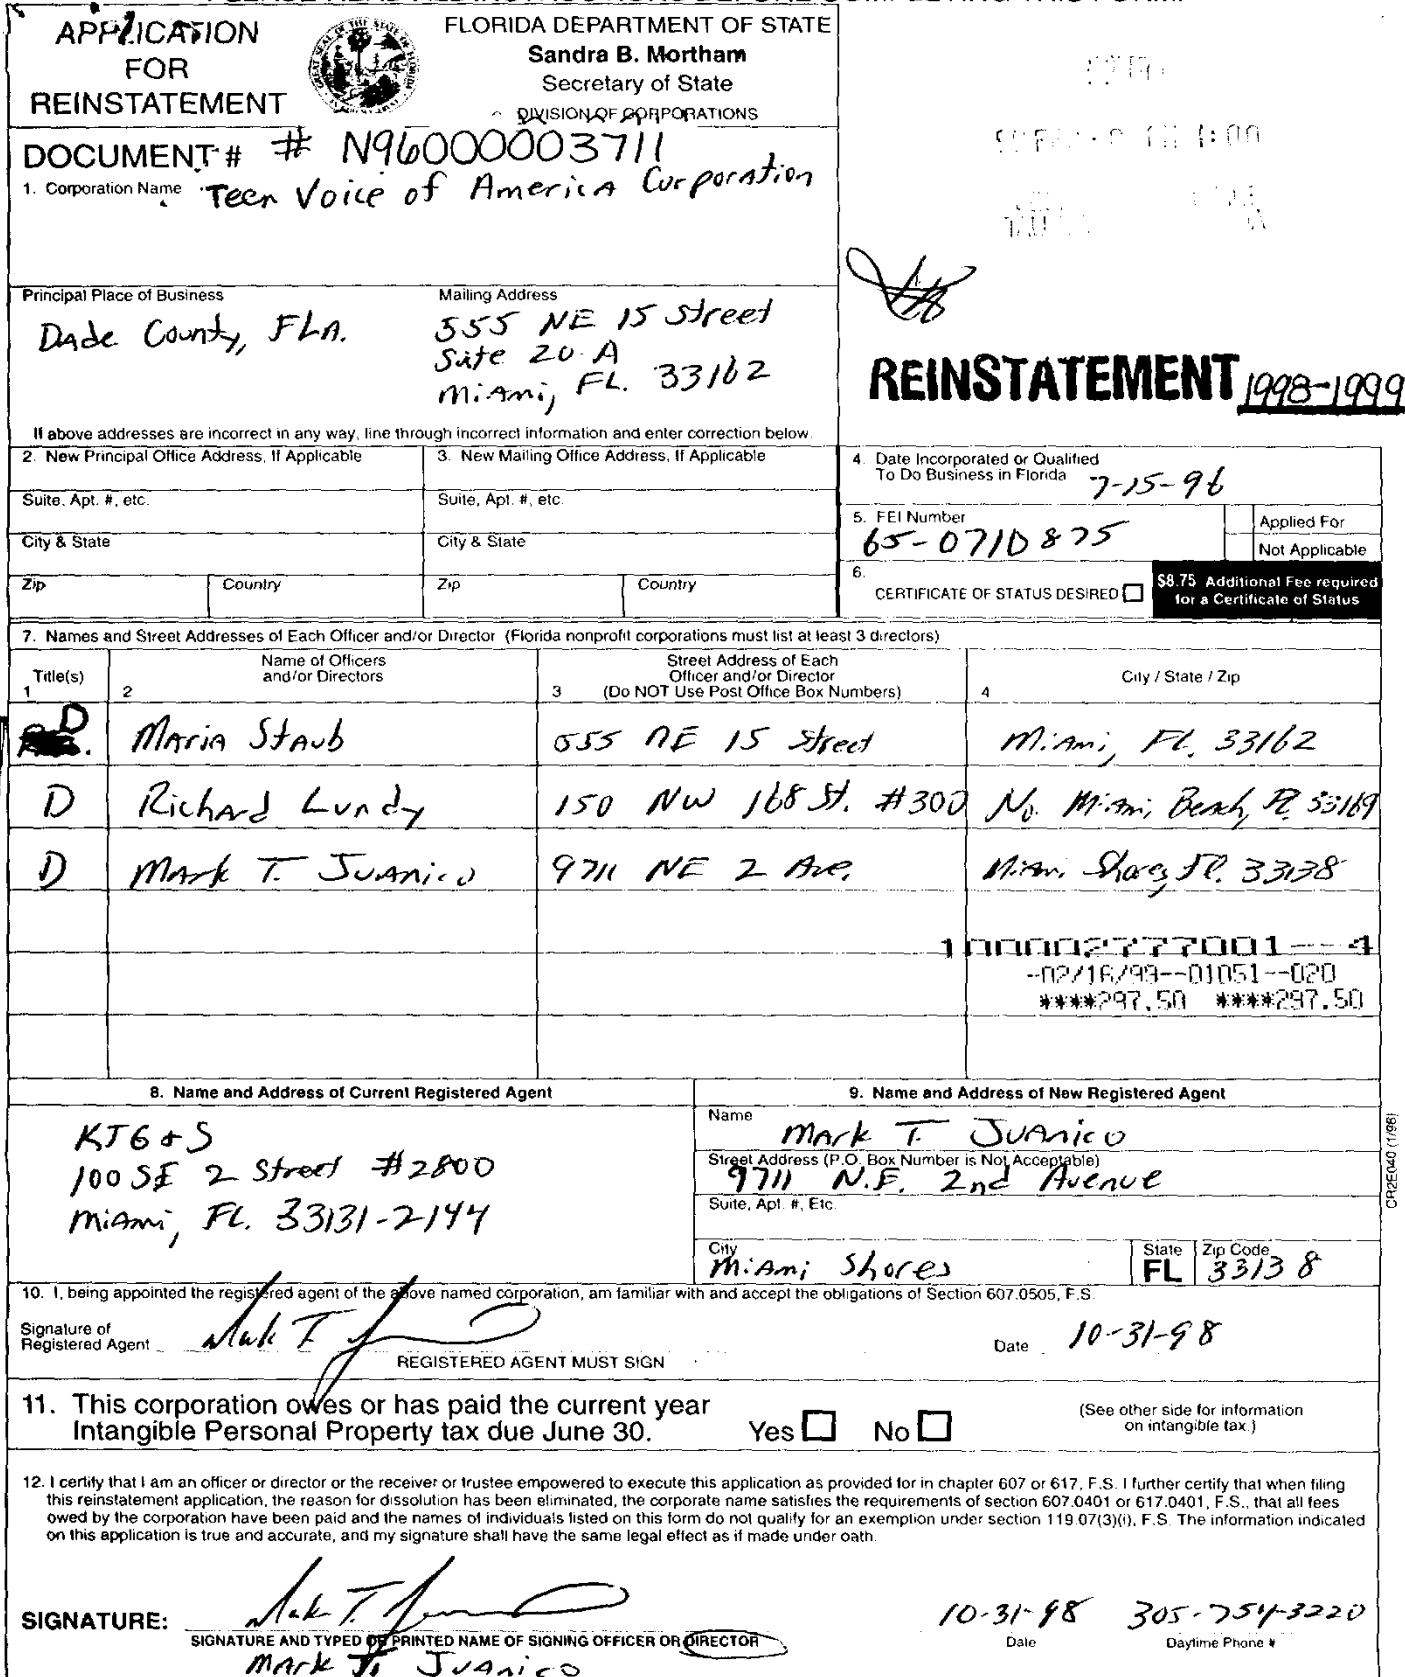 APPLICATION
FOR
REINSTATEMENT
FLORIDA DEPARTMENT OF STATE
Sandra B. Mortham
Secretary of State
DIVISION OF CORPORATIONS
DOCUMENT # # N96000003711
1. Corporation Name Teen Voice of America Corporation
Principal Place of Business
Dade County, FLA.
Mailing Address
555 NE 15 Street
Suite 20 A
Miami, FL. 33162
REINSTATEMENT 1998-1999
If above addresses are incorrect in any way, line through incorrect information and enter correction below.
2. New Principal Office Address, If Applicable
3. New Mailing Office Address, If Applicable
Suite, Apt. #, etc.
Suite, Apt. #, etc.
City & State
City & State
Zip Country Zip Country
4. Date Incorporated or Qualified
To Do Business in Florida 7-15-96
5. FEI Number
65-0710875
Applied For
Not Applicable
6.
CERTIFICATE OF STATUS DESIRED
$8.75 Additional Fee required
for a Certificate of Status
7. Names and Street Addresses of Each Officer and/or Director (Florida nonprofit corporations must list at least 3 directors)
Title(s)
1
Name of Officers
and/or Directors
2
Street Address of Each
Officer and/or Director
3 (Do NOT Use Post Office Box Numbers)
City / State / Zip
4
D Maria Staub 555 NE 15 Street Miami, FL. 33162
D Richard Lundy 150 NW 168 St. #300 No. Miami Beach, Fl 33169
D Mark T. Juanico 9711 NE 2 Ave. Miami Shores, Fl. 33138
100002777001--4
-02/16/99--01051--020
****297.50 ****297.50
8. Name and Address of Current Registered Agent
KJG & S
100 SE 2 Street #2800
Miami, FL. 33131-2144
9. Name and Address of New Registered Agent
Name
Mark T. Juanico
Street Address (P.O. Box Number is Not Acceptable)
9711 N.E. 2nd Avenue
Suite, Apt. #, Etc.
City
Miami Shores
State
FL
Zip Code
33138
CR2E040 (1/98)
10. I, being appointed the registered agent of the above named corporation, am familiar with and accept the obligations of Section 607.0505, F.S.
Signature of
Registered Agent Mark T. Date 10-31-98
REGISTERED AGENT MUST SIGN
11. This corporation owes or has paid the current year
Intangible Personal Property tax due June 30. Yes No
(See other side for information
on intangible tax.)
12. I certify that I am an officer or director or the receiver or trustee empowered to execute this application as provided for in chapter 607 or 617, F.S. I further certify that when filing
this reinstatement application, the reason for dissolution has been eliminated, the corporate name satisfies the requirements of section 607.0401 or 617.0401, F.S., that all fees
owed by the corporation have been paid and the names of individuals listed on this form do not qualify for an exemption under section 119.07(3)(i), F.S. The information indicated
on this application is true and accurate, and my signature shall have the same legal effect as if made under oath.
SIGNATURE: Mark T. 10-31-98 305-754-3220
SIGNATURE AND TYPED OR PRINTED NAME OF SIGNING OFFICER OR DIRECTOR Date Daytime Phone #
Mark T. Juanico